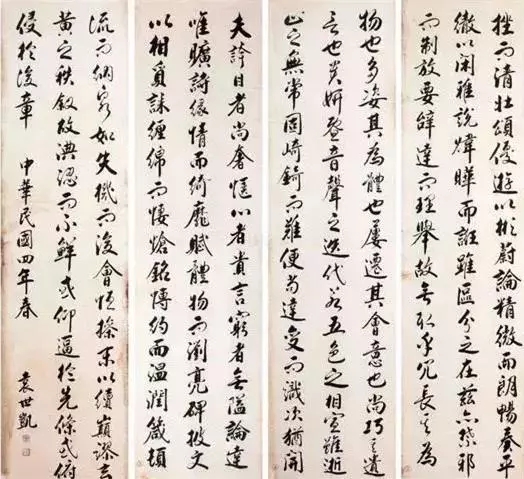 挫而清壮頌優遊以彬蔚論精微而朗暢奏平
徹以閑雅說煒曄而誑雖區分之在茲亦禁邪
而制放要辭達而理舉故無取乎冗長其為
物也多姿其為體也屢遷其會意也尚巧其遣
言也貴妍暨音聲之迭代若五色之相宣雖逝
止之無常固崎錡而難便苟達變而識次猶開
夫誇目者尚奢愜心者貴言窮者無隘論達
唯曠詩緣情而綺靡賦體物而瀏亮碑披文
以相質誄纏綿而悽愴銘博約而溫潤箴頓
流而納泉如失機而後會恒操末以續顛謬玄
黃之秩敘故淟涊而不鮮或仰逼於先條或俯
侵於後章 中華民國四年春
袁世凱